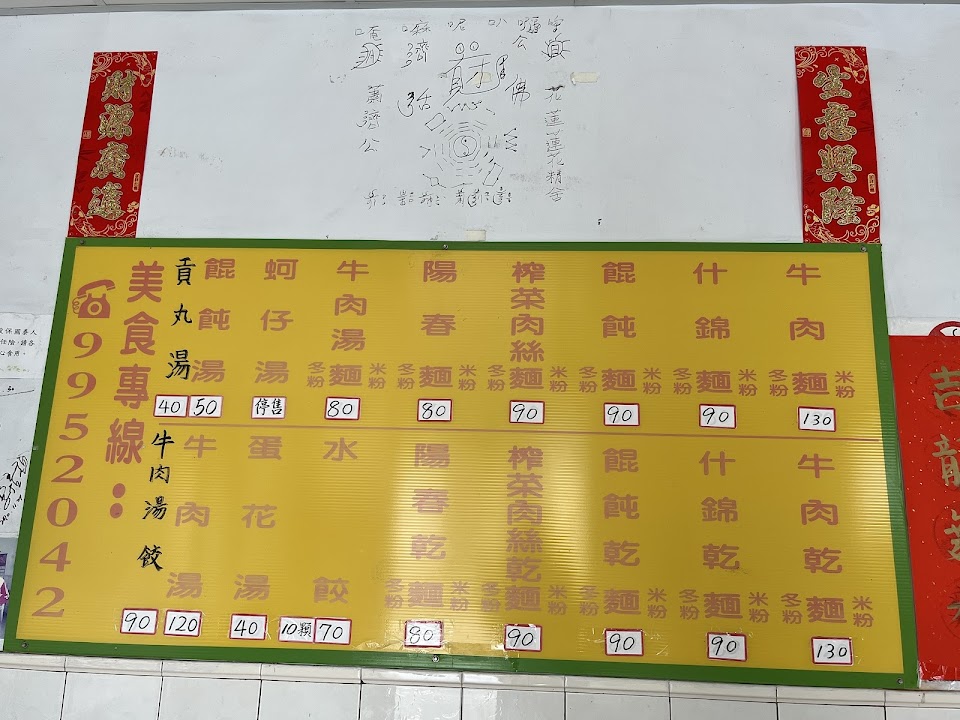 財源廣進
生意興隆
花蓮蓮花精舍
佛
濟公
美食專線：
☎9952042
牛肉麵 冬粉 米粉 130
什錦麵 冬粉 米粉 90
餛飩麵 冬粉 米粉 90
榨菜肉絲麵 冬粉 米粉 90
陽春麵 冬粉 米粉 80
牛肉湯麵 冬粉 米粉 80
蚵仔湯 停售
餛飩湯 50
貢丸湯 40
牛肉乾麵 冬粉 米粉 130
什錦乾麵 冬粉 米粉 90
餛飩乾麵 冬粉 米粉 90
榨菜肉絲乾麵 冬粉 米粉 90
陽春乾麵 冬粉 米粉 80
水餃 10顆 70
蛋花湯 40
牛肉湯 120
牛肉湯餃 90
吉龍